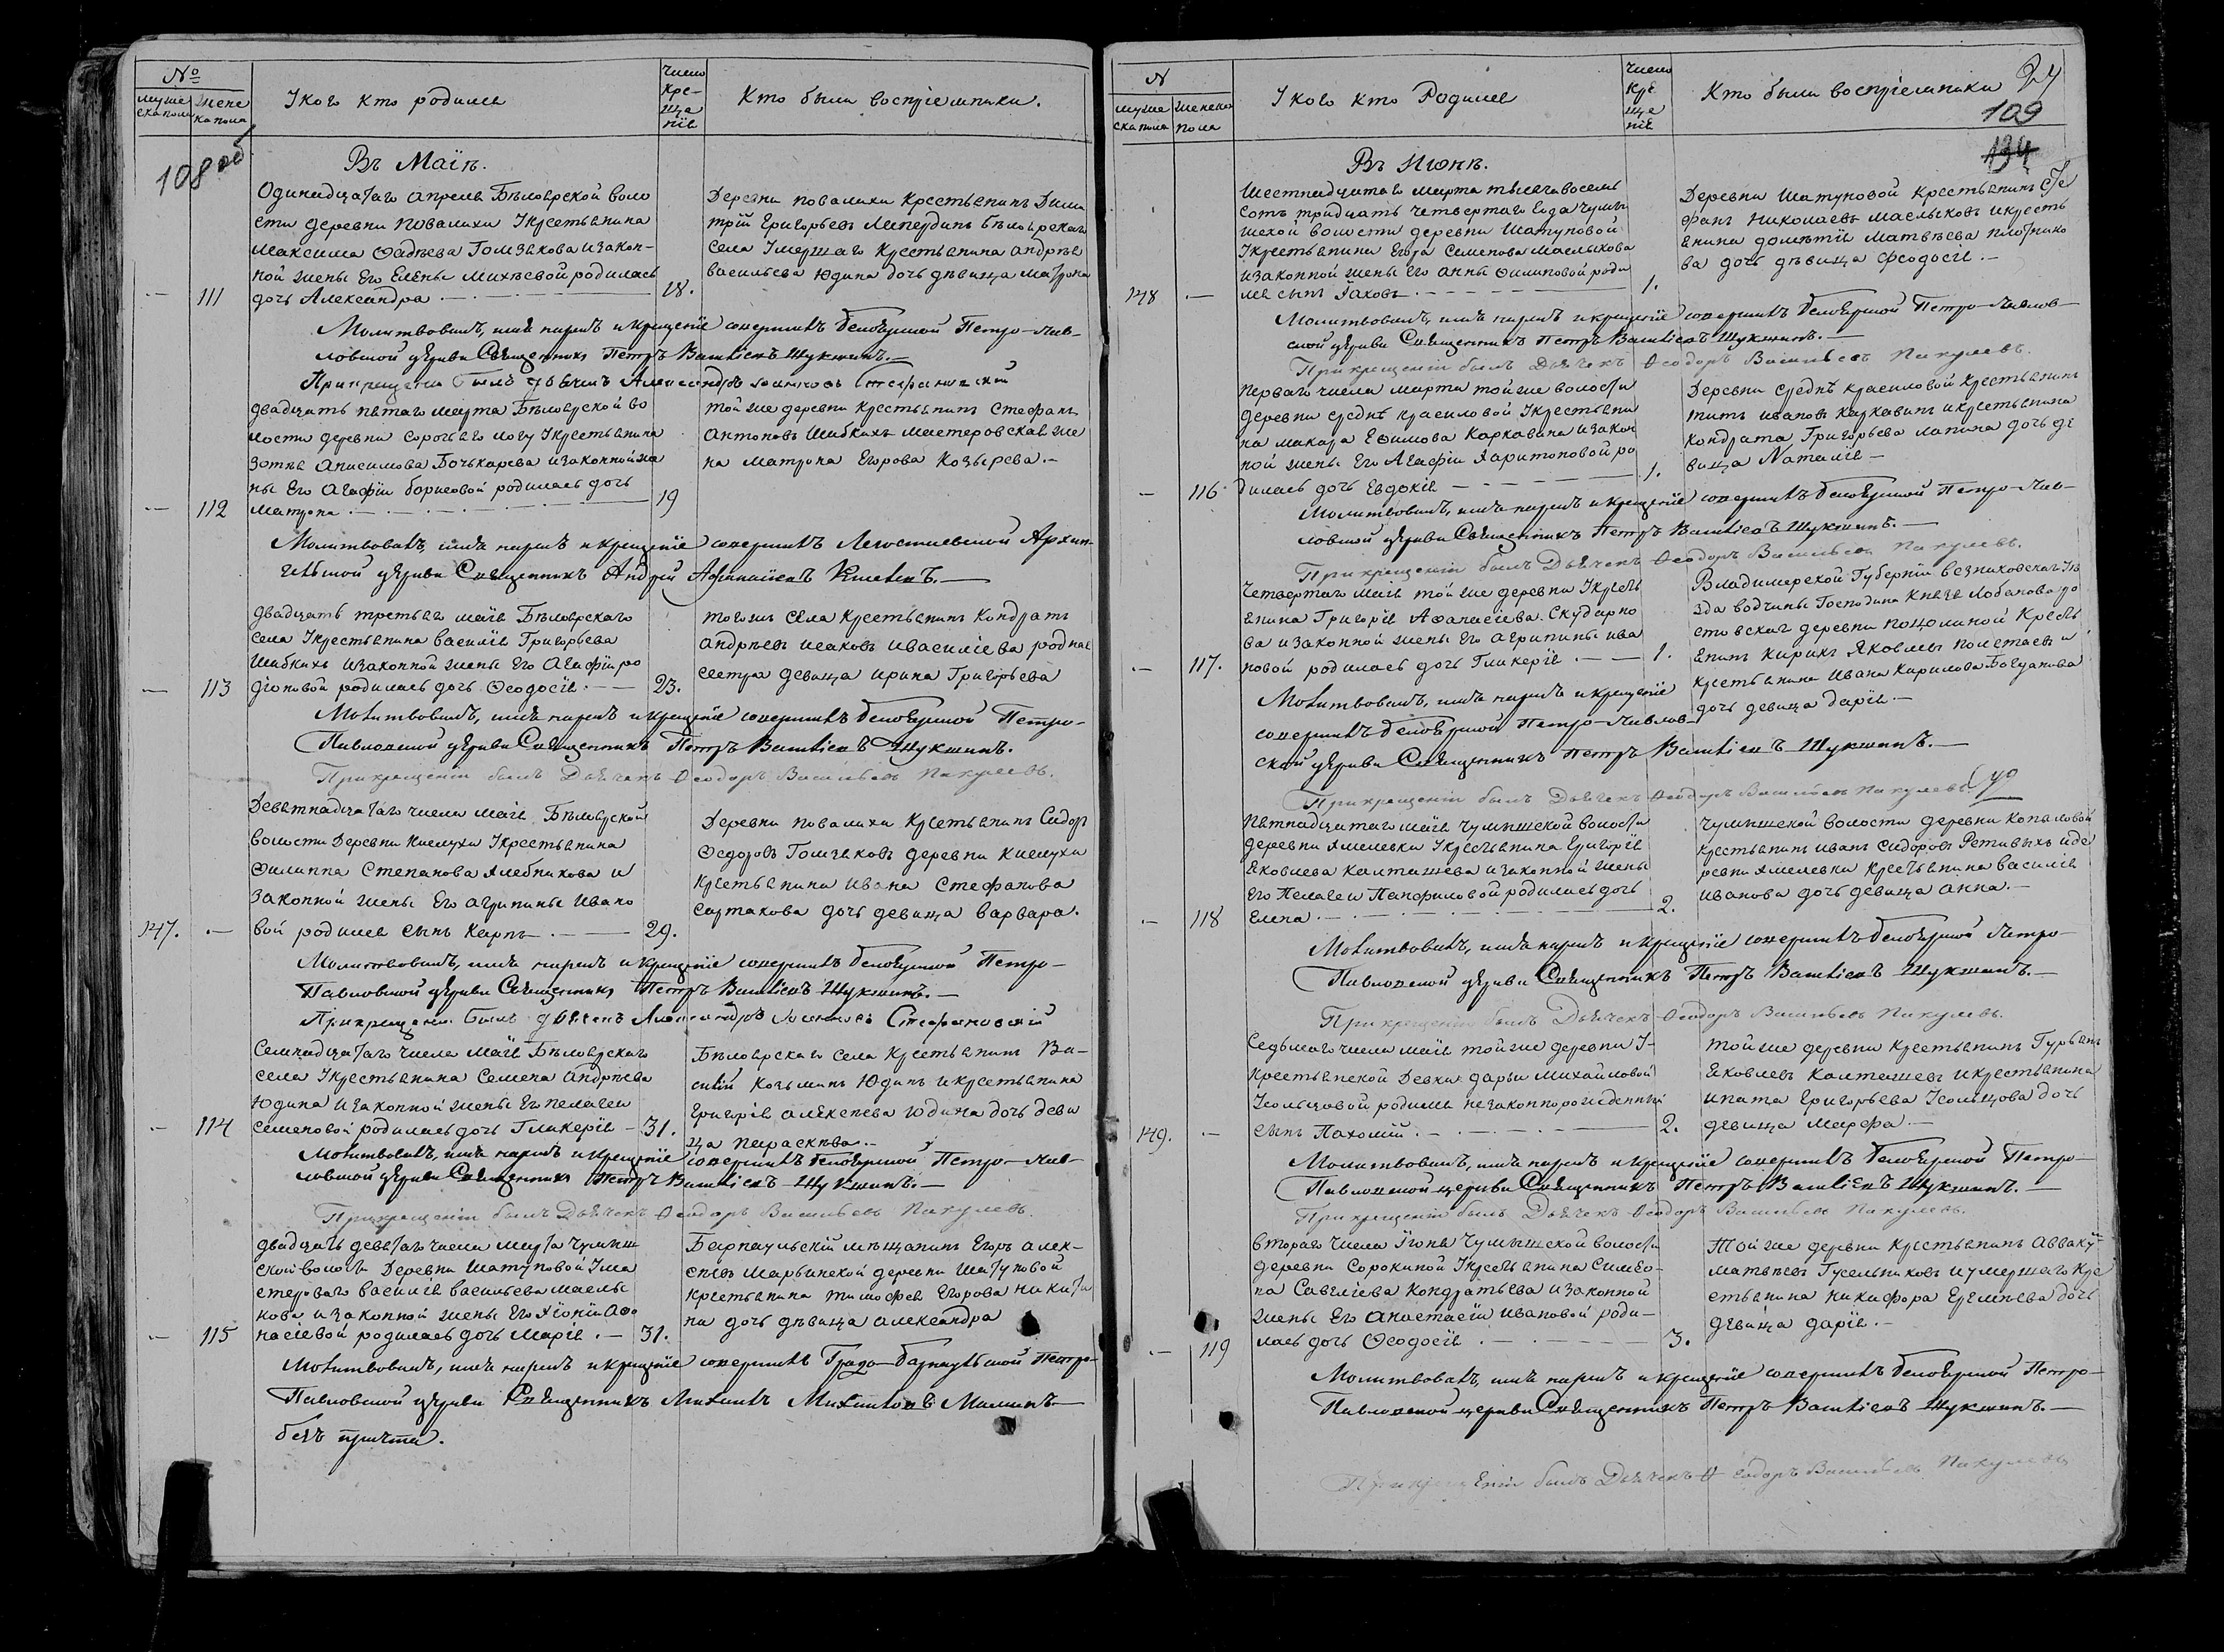 №
мужеска пола
женска пола
У кого кто родился
Число крещенія
Кто были воспріемники.
108 об
Въ Маіѣ.
Одинадцатаго апреля Бѣлоярской воло
сти деревни Повалихи У крестьянина
Максима Фадѣева Гомзякова и закон-
ной жены Его Елены Михѣевой родилась
— 111 дочь Александра 18.
Деревни повалихи крестьянинъ Дими
трій Григорьевъ Бѣлоярскаго
села Умершаго крестьянина андрѣя
васильева Юдина дочь дѣвица матрона
Молитвовалъ, имя нарекъ и крещеніе совершилъ Белоярской Петро-Пав-
ловской церкви Священникъ Петръ Васильевъ Шукшинъ.—
При крещеніи былъ дьячекъ Александръ Стефановскій
двадцать пятаго марта Бѣлоярской во
лости деревни сорочьяго логу У крестьянина
Зотия Анисимова Бочкарева и законной же
ны Его Агафіи борисовой родилась дочь
— 112 Матрона 19
той же деревни крестьянинъ Стефанъ
Антоновъ Шибкихъ мастеровская же
на матрона Егорова Козырева.—
Молитвовалъ, имя нарекъ и крещеніе совершилъ Легостаевской Архан-
гельской церкви Священникъ Андрей Афанасіевъ
двадцать третьяго маія Бѣлоярскаго
села У крестьянина василія Григорьева
Шибкихъ и законной жены Его Агафіи ро
— 113 діоновой родилась дочь Феодосія.— 23.
тогожъ села крестьянинъ Кондратъ
андрѣевъ исаковъ и василіева родная
сестра девица ирина Григорьева
Молитвовалъ, имя нарекъ и крещеніе совершилъ белоярской Петро-
Павловской церкви Священникъ Петръ Васильевъ Шукшинъ.
При крещеніи былъ Дьячекъ Феодоръ Васильевъ Пакулевъ.
Девятнадцатаго числа маія Бѣлоярской
волости Деревни Кислухи У крестьянина
Филиппа Степанова Хлебникова и
законной жены Его агрипины Ивано
147. — вой родился сынъ Карпъ.— 29.
Деревни повалихи крестьянинъ Сидоръ
Федоровъ Гомзяковъ деревни Кислухи
крестьянина ивана Стефанова
сартакова дочь девица варвара.
Молитвовалъ, имя нарекъ и крещеніе совершилъ белоярской Петро-
Павловской церкви Священникъ Петръ Васильевъ Шукшинъ.—
При крещеніи былъ дьячекъ Александръ Стефановскій
Семнадцатаго числа маія Бѣлоярскаго
села У крестьянина Семена андрѣева
Юдина и законной жены Его пелагеи
— 114 семеновой родилась дочь Гликерія — 31.
Бѣлоярскаго села крестьянинъ Ва-
силій Козьминъ Юдинъ и крестьянина
Григорія алексѣева Юдина дочь деви
ца параскева.—
Молитвовалъ, имя нарекъ и крещеніе совершилъ белоярской Петро-Пав-
ловской церкви Священникъ Петръ Васильевъ Шукшинъ.—
При крещеніи былъ Дьячекъ Феодоръ Васильевъ Пакулевъ.
двадцать девятаго числа марта Чумыш
ской волости Деревни Шатуновой Ума
стероваго василія васильева маслы
кова и законной жены Его Хіоніи Афо
— 115 насіевой родилась дочь Марія.— 31.
Барнаульскій мѣщанинъ Егоръ алек-
сѣевъ деревни Шатуновой
крестьянина тимофея Егорова никити
на дочь дѣвица александра
Молитвовалъ, имя нарекъ и крещеніе совершилъ Градо-барнаульской Петро-
Павловской церкви Священникъ Михаилъ Михаиловъ
безъ причта.
№
мужеска пола
женска пола
У кого кто Родился
Число крещеніе
Кто были воспріемники
24
109
134
Въ Июнѣ.
Шестнадцатаго марта тысяча восемь
сотъ тридцать четвертаго Года Чумы
шской волости деревни Шатуновой
У крестьянина Егора Семенова Маслыкова
и законной жены Его анны Филиповой роди
148 — лся сынъ Іаковъ 1.
Деревни Шатуновой крестьянинъ Сте
фанъ Николаевъ маслыковъ и кресть
янина дометія Матвѣева плотнико
ва дочь дѣвица Феодосія.—
Молитвовалъ, имя нарекъ и крещеніе совершилъ белоярской Петро-Павлов-
ской церкви Священникъ Петръ Васильевъ Шукшинъ.—
При крещеніи былъ Дьячекъ Феодоръ Васильевъ Пакулевъ.
перваго числа марта той же волости
деревни средне красиловой У крестьяни
на макара Ефимова Каркавина и закон
ной жены Его Агафіи Харитоновой ро
— 116 дилась дочь Евдокія 1.
Деревни средне красиловой крестьянинъ
титъ ивановъ Каркавинъ и крестьянина
кондрата Григорьева лапина дочь де
вица Наталія—
Молитвовалъ, имя нарекъ и крещеніе совершилъ белоярской Петро-Пав-
ловской церкви Священникъ Петръ Васильевъ Шукшинъ.—
При крещеніи былъ Дьячекъ Феодоръ Васильевъ Пакулевъ.
Четвертаго маія той же деревни У кресть
янина Григорія Афанасіева Скударно
ва и законной жены Его агрипины ива
— 117. новой родилась дочь Гликерія.— 1.
Владимерской Губерніи вязниковскаго Уѣ
зда вотчины Господина Князя Лобанова ро
стовскаго деревни кресть
янинъ кирикъ Яковлевъ и
крестьянина ивана Кирилова Богданова
дочь девица дарія—
Молитвовалъ, имя нарекъ и крещеніе
совершилъ белоярской Петро-Павлов-
ской церкви Священникъ Петръ Васильевъ Шукшинъ.—
При крещеніи былъ Дьячекъ Феодоръ Васильевъ Пакулевъ.
Пятнадцатаго маія чумышской волости
деревни Хмелевки У крестьянина Григорія
Яковлева Калташева и законной жены
Его Пелагеи Панфиловой родилась дочь
— 118 Елена 2.
чумышской волости деревни Копыловой
крестьянинъ иванъ Сидоровъ Ретивыхъ и де
ревни Хмелевки крестьянина василія
иванова дочь девица анна.—
Молитвовалъ, имя нарекъ и крещеніе совершилъ белоярской Петро-
Павловской церкви Священникъ Петръ Васильевъ Шукшинъ.—
При крещеніи былъ Дьячекъ Феодоръ Васильевъ Пакулевъ.
Седьмаго числа маія той же деревни У-
крестьянской Девки дарьи Михаиловой
Усольцовой родился незаконнорожденный
149. — сынъ Пахомій 2.
той же деревни крестьянинъ Гурьянъ
Яковлевъ Калташевъ и крестьянина
ипата Григорьева Усольцова дочь
девица Марфа—
Молитвовалъ, имя нарекъ и крещеніе совершилъ белоярской Петро-
Павловской церкви Священникъ Петръ Васильевъ Шукшинъ.—
При крещеніи былъ Дьячекъ Феодоръ Васильевъ Пакулевъ.
втораго числа Іюня Чумышской волости
деревни Сорокиной У крестьянина Симео-
на Савеліева Кондратьева и законной
жены Его Анастасіи ивановой роди-
— 119 лась дочь Феодосія 3.
Той же деревни крестьянинъ Аввакумъ
матвѣевъ Гусельниковъ и умершаго кре
стьянина никифора Еремѣева дочь
дѣвица дарія.—
Молитвовалъ, имя нарекъ и крещеніе совершилъ белоярской Петро-
Павловской церкви Священникъ Петръ Васильевъ Шукшинъ.—
При крещеніи былъ Дьячекъ Феодоръ Васильевъ Пакулевъ